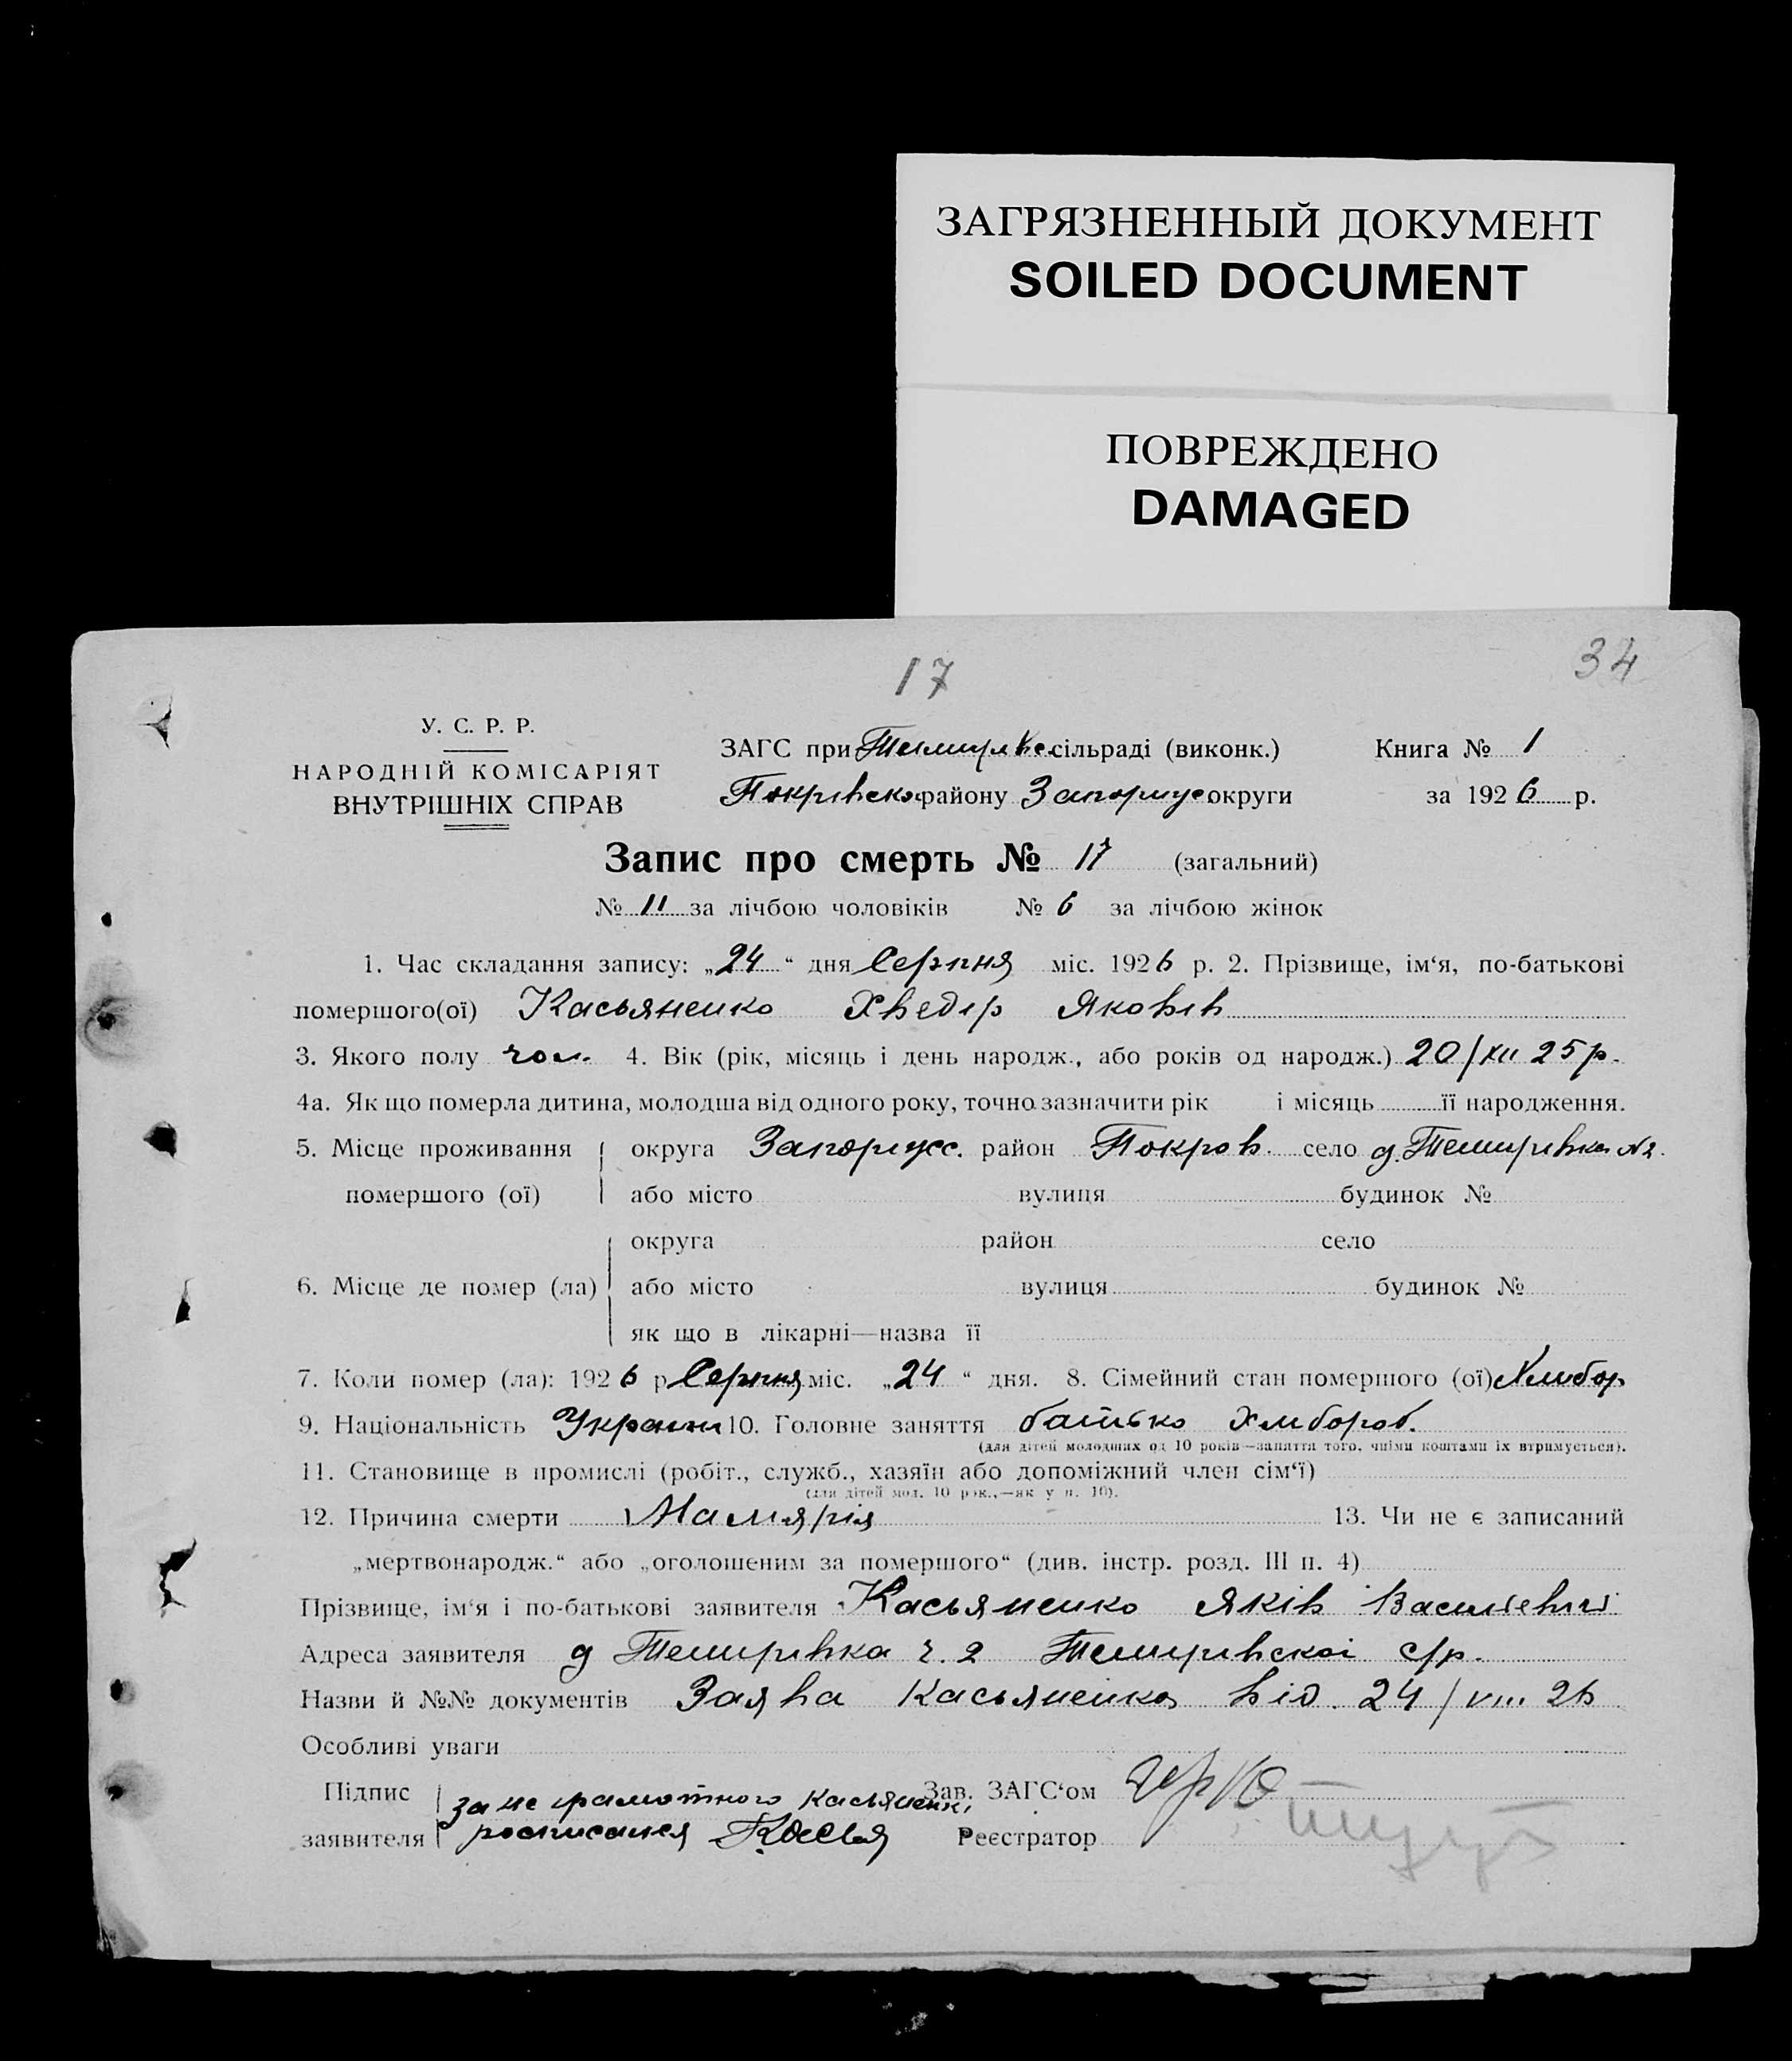 ЗАГРЯЗНЕННЫЙ ДОКУМЕНТ
SOILED DOCUMENT
ПОВРЕЖДЕНО
DAMAGED
17
34
У. С. Р. Р.
НАРОДНІЙ КОМІСАРІЯТ
ВНУТРІШНІХ СПРАВ
ЗАГС при сільраді (виконк.) Книга № 1
Покрівсько району Запоріжс округи за 1926 р.
Запис про смерть № 17 (загальний)
№ 11 за лічбою чоловіків № 6 за лічбою жінок
1. Час складання запису: „24“ дня Серпня міс. 1926 р. 2. Прізвище, ім‘я, по-батькові
помершого(ої) Касьяненко Хведір Яковів
3. Якого полу чол. 4. Вік (рік, місяць і день народж., або років од народж.) 20/XII 25 р.
4а. Як що померла дитина, молодша від одного року, точно зазначити рік і місяць її народження.
5. Місце проживання округа Запоріжс. район Покров. село д. Темирівка №2.
помершого (ої) або місто вулиця будинок №
округа район село
6. Місце де помер (ла) або місто вулиця будинок №
як що в лікарні—назва її
7. Коли помер (ла): 1926 р Серпня міс. „24“ дня. 8. Сімейний стан помершого (ої)
9. Національність 10. Головне заняття батько хлібороб.
(для дітей молодших од 10 років—заняття того, чиїми коштами їх втримується).
11. Становище в промислі (робіт., служб., хазяїн або допоміжний член сім‘ї)
(для дітей мол. 10 рок.,—як у п. 10).
12. Причина смерти Малярія 13. Чи не є записаний
„мертвонародж.“ або „оголошеним за помершого“ (див. інстр. розд. III п. 4)
Прізвище, ім‘я і по-батькові заявителя Касьяненко Яків Васильевич
Адреса заявителя д Темирівка ч. 2 Темирівскої с/р.
Назви й №№ документів Заява Касьяненка від 24/VIII 26
Особливі уваги
Підпис за не грамотного Касьяненк Зав. ЗАГС‘ом
заявителя росписался Касья Реєстратор